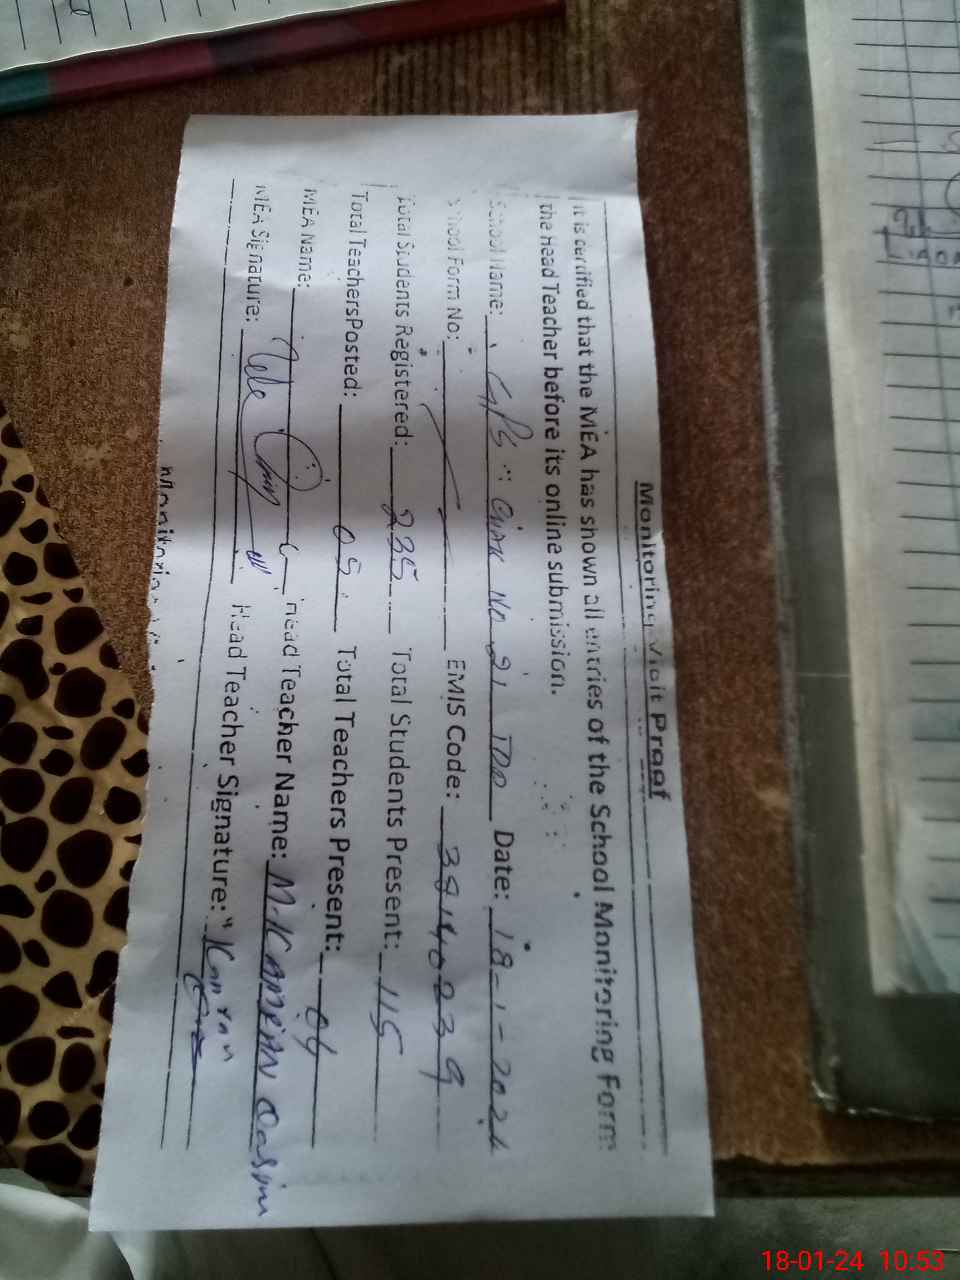 Monitoring Visit Proof
It is certified that the MEA has shown all entries of the School Monitoring Form
the Head Teacher before its online submission.
School Name: GPS NO 21 TDA Date: 18-1-2024
School Form No: EMIS Code: 38140239
Total Students Registered: 235 Total Students Present: 115
Total Teachers Posted: 05 Total Teachers Present: 04
MEA Name: Head Teacher Name: M. KAMRAN Qasim
MEA Signature: Head Teacher Signature: "Kamran"
18-01-24 10:53